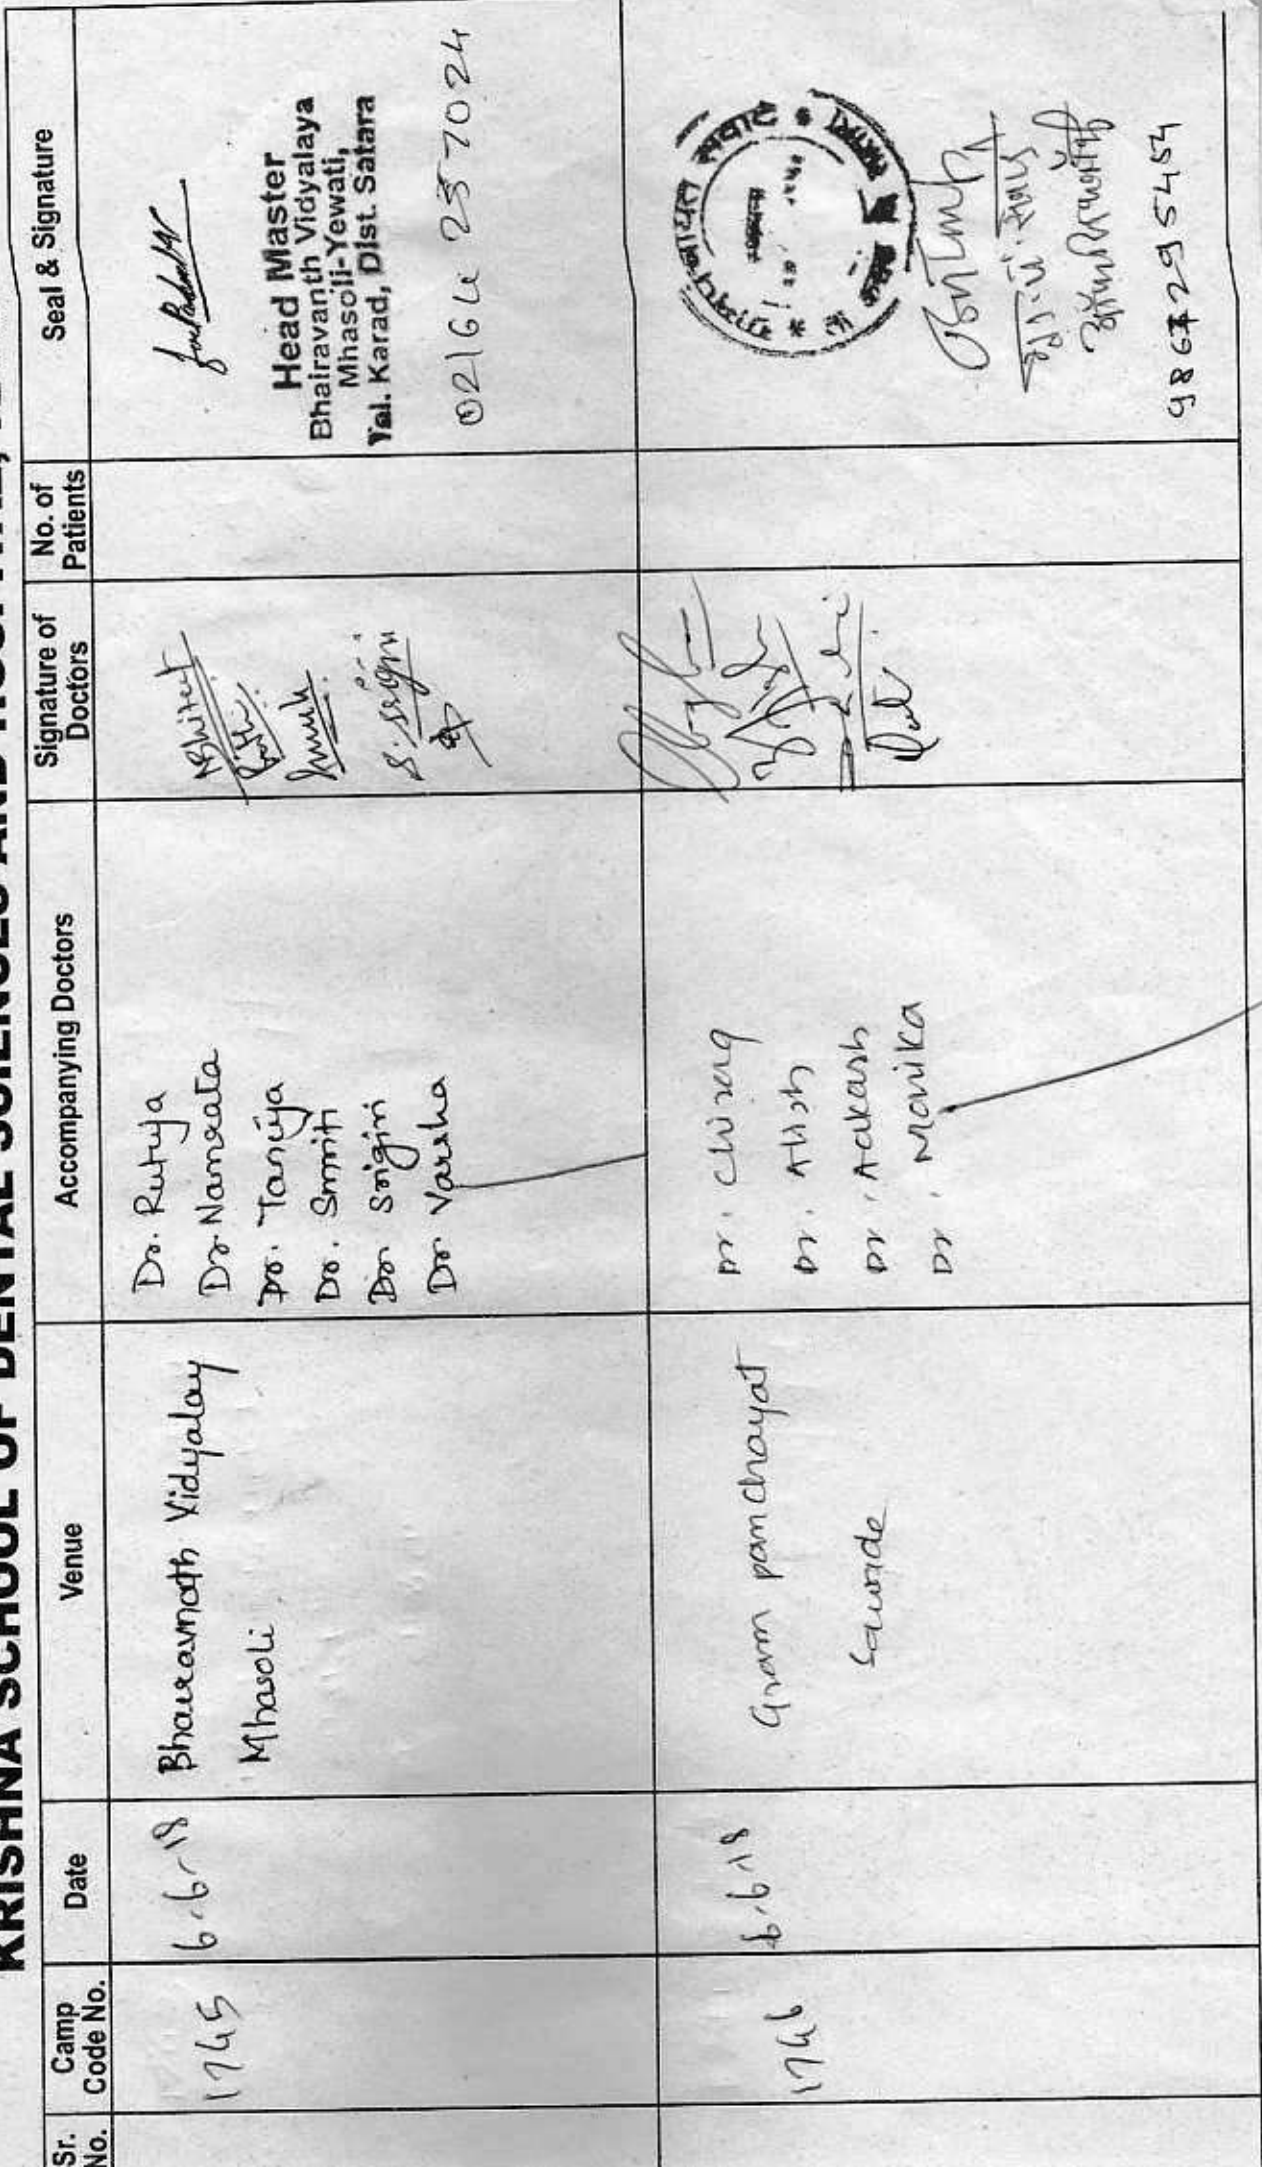 KRISHNA SCHOOL OF DENTAL SCIENCES AND
Sr. No.
Camp Code No.
Date
Venue
Accompanying Doctors
Signature of Doctors
No. of Patients
Seal & Signature
1745
6-6-18
Bhairavnath Vidyalay
Mhasoli
Dr. Rutuja
Dr. Namrata
Dr. Tanuja
Dr. Smriti
Dr Srigini
Dr Varsha
Head Master
Bhairavanth Vidyalaya
Mhasoli-Yewati,
Tal. Karad, Dist. Satara
02164 257024
1746
6-6-18
Gram panchayat
Sawade
Dr. Chirag
Dr. Atish
Dr. Aakash
Dr. Monika
ग्रामपंचायत